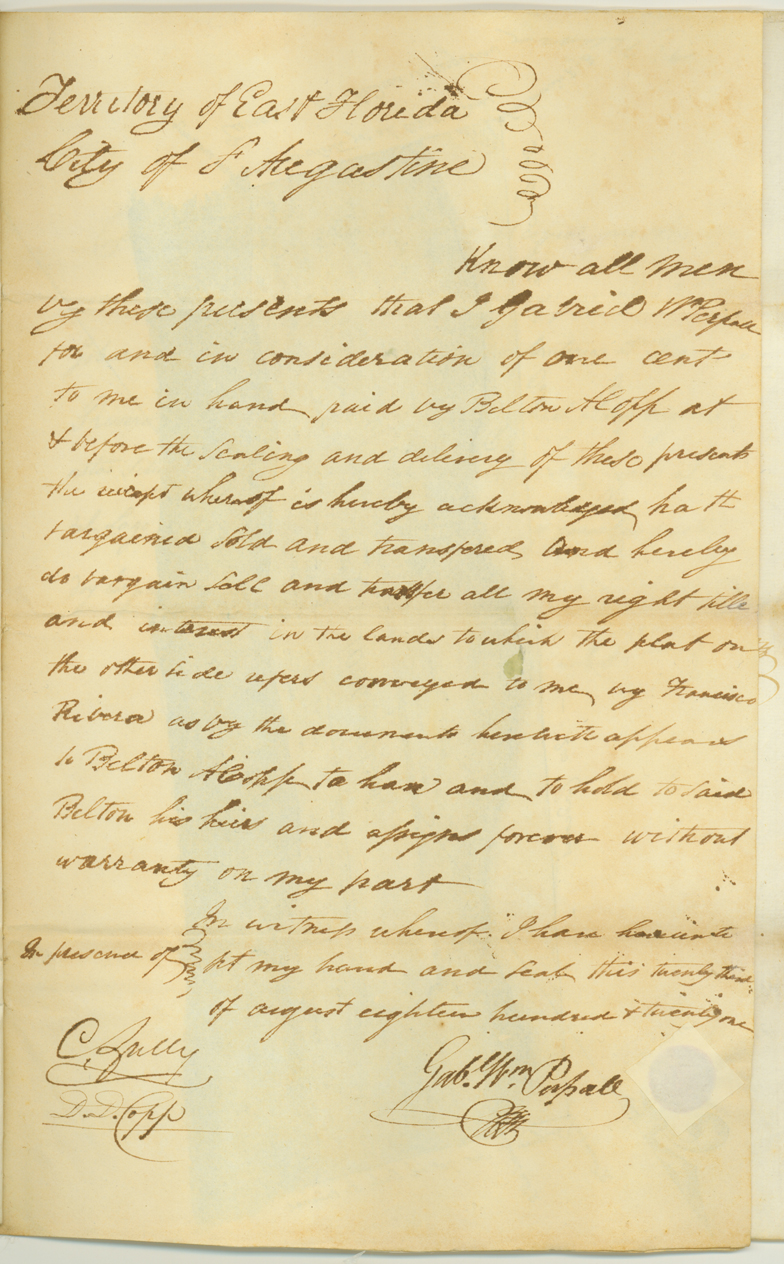 Territory of East Florida
City of St Augastine
Know all men
by these presents that I Gabriel Wm Perpall
for and in consideration of one cent
to me in hand paid by Belton A Copp at
& before the sealing and delivery of these presents
the reciept whereof is hereby acknowledged, hath
bargained sold and transfered and hereby
do bargain sell and transfer all my right title
and interest in the lands to which the plat on
the other side refers conveyed to me by Francisco
Rivera as by the documents herewith appears
to Belton A Copp to have and to hold to said
Belton his heirs and assigns forever without
warranty on my part
In witness whereof I have hereunto
In presence of set my hand and seal this twenty third
of august eighteen hundred & twenty one
C. Gully
Gabl. Wm Perpall
D. D. Copp